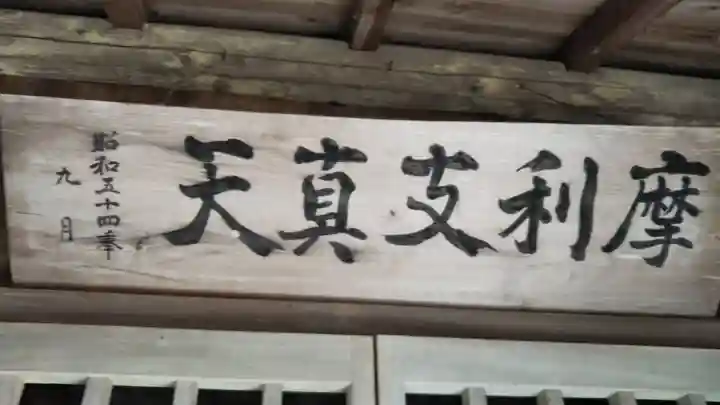 摩利支真天
昭和五十四年
九月